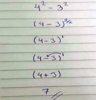 4² - 3²
(4 - 3)²/²
(4 - 3)¹
(4 - 3)¹
(4 + 3)
7